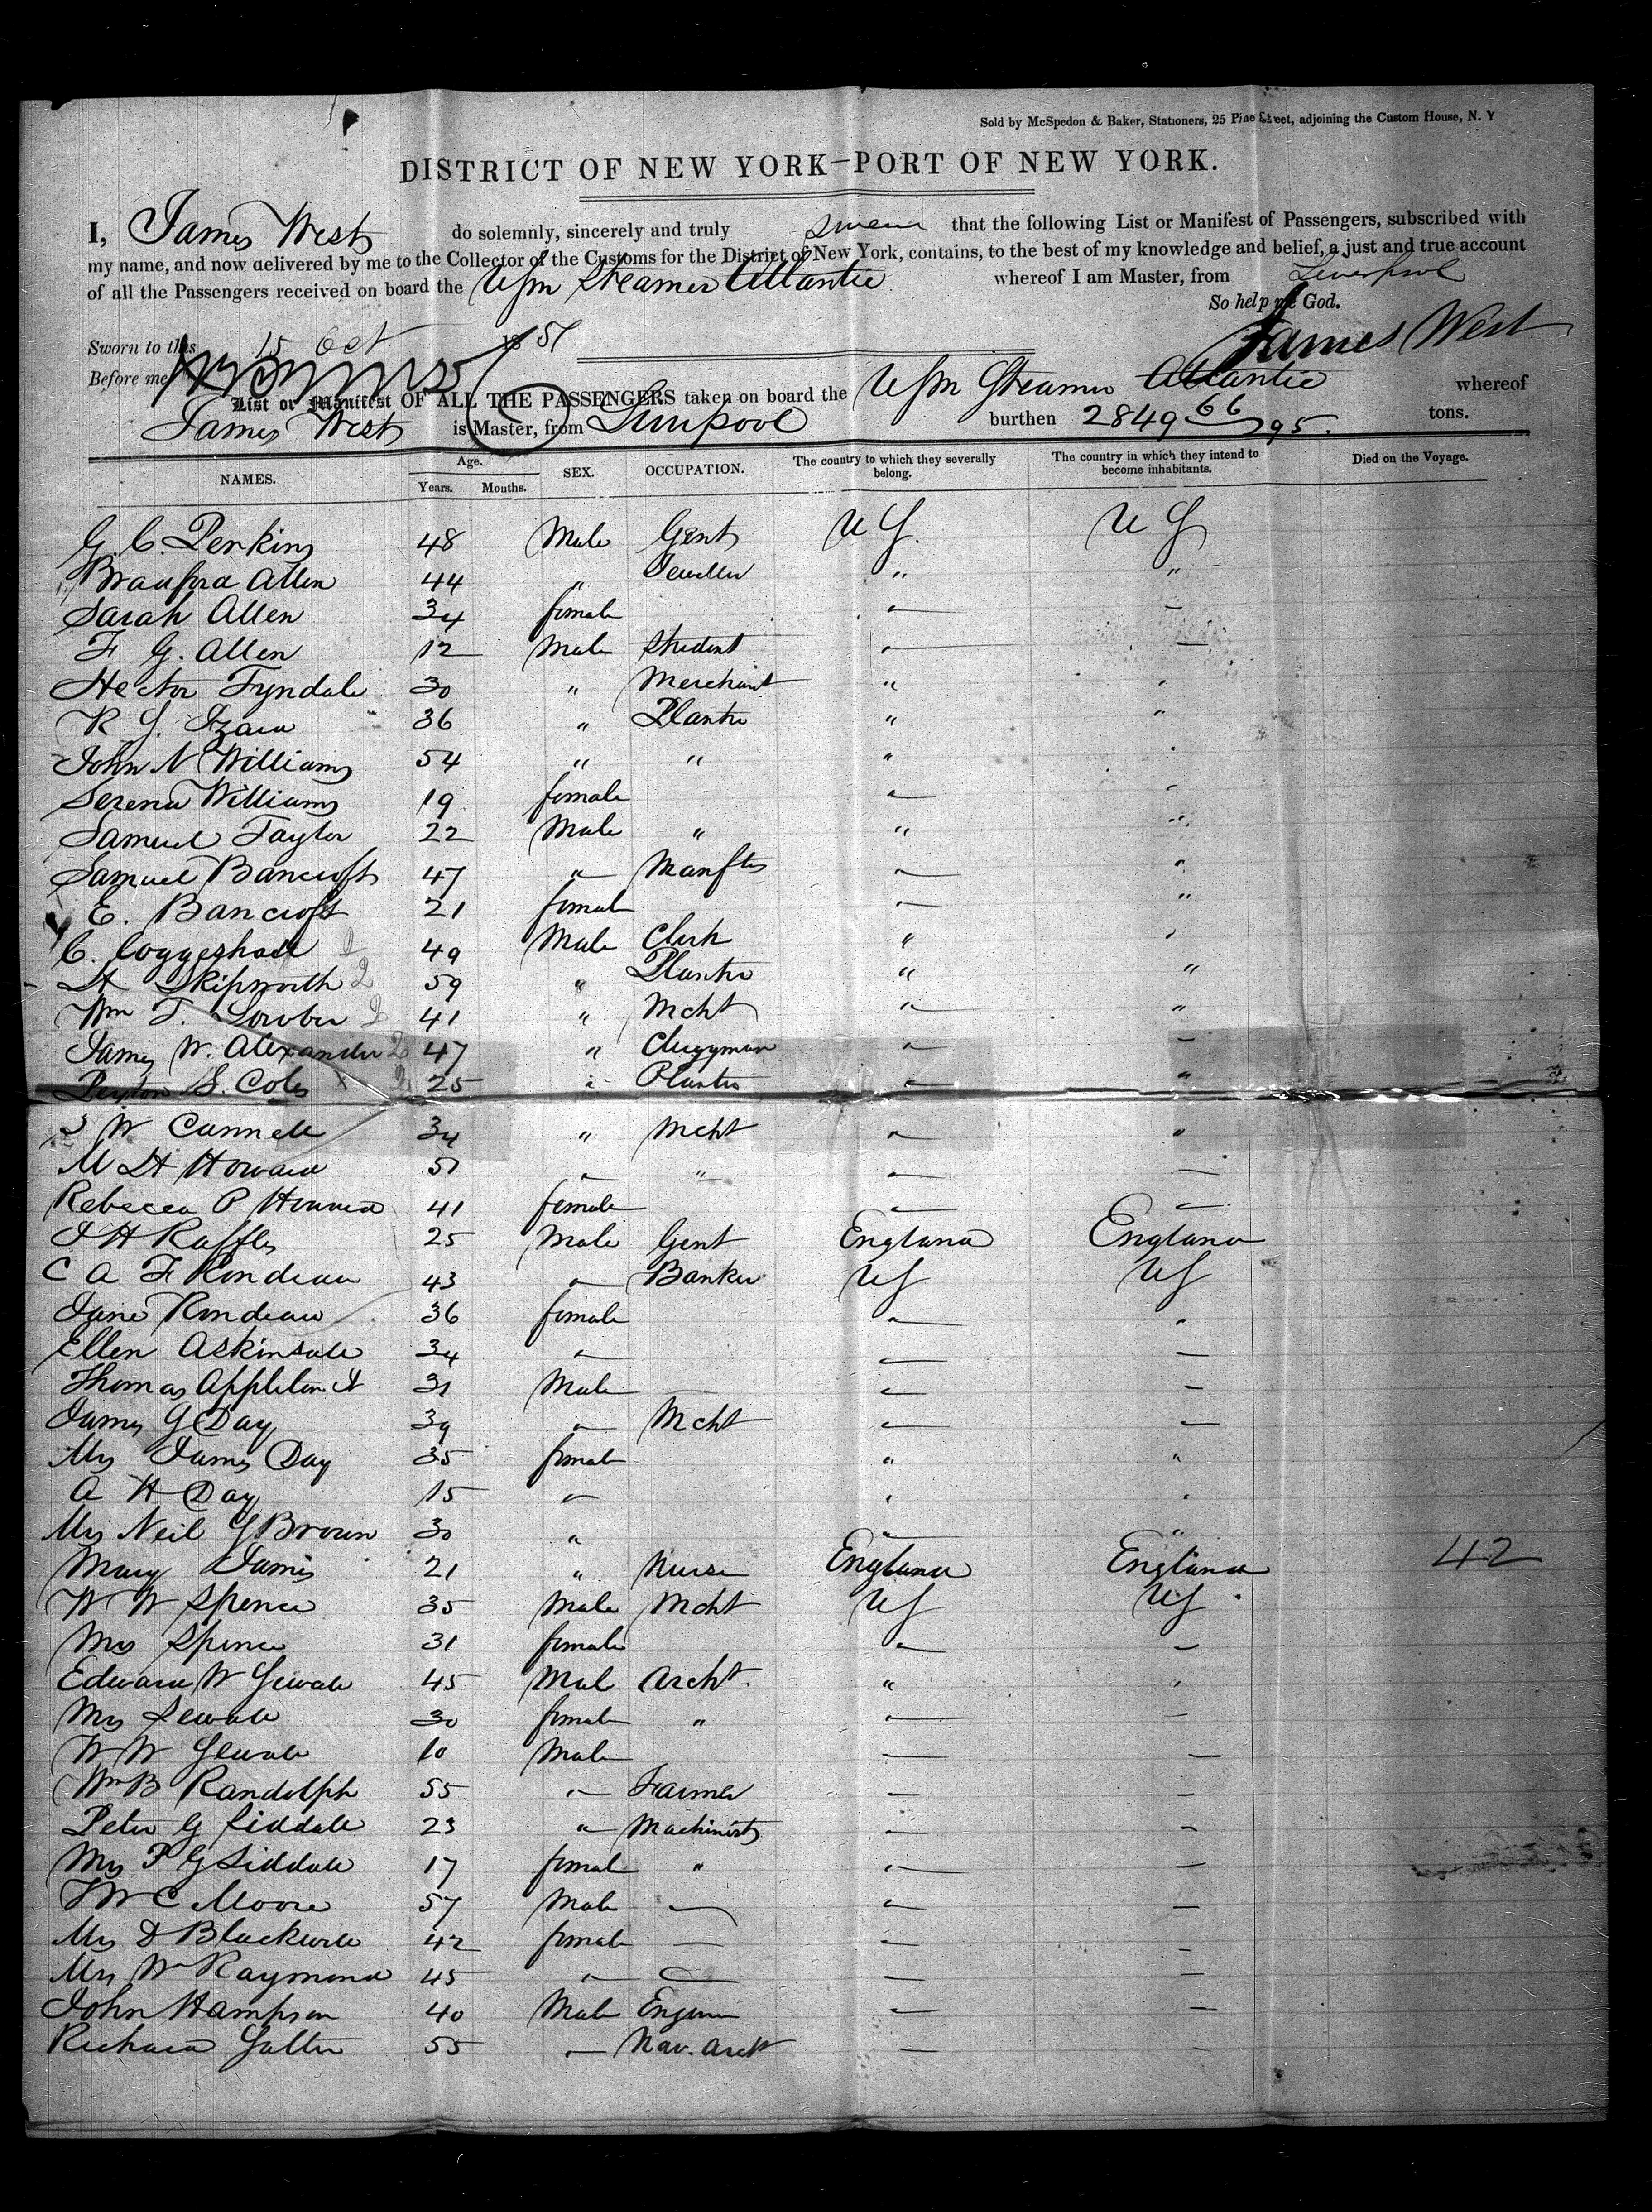 Sold by McSpedon & Baker, Stationers, 25 Pine Street, adjoining the Custom House, N. Y
DISTRICT OF NEW YORK—PORT OF NEW YORK.
I, James West do solemnly, sincerely and truly swear that the following List or Manifest of Passengers, subscribed with
my name, and now delivered by me to the Collector of the Customs for the District of New York, contains, to the best of my knowledge and belief, a just and true account
of all the Passengers received on board the USM Steamer Atlantic whereof I am Master, from Liverpool
So help me God.
Sworn to this 15 Oct 1851 James West
Before me
List or Manifest OF ALL THE PASSENGERS taken on board the USM Steamer Atlantic whereof
James West is Master, from Liverpool burthen 2849 66/95 tons.
NAMES. Age. Years. Months. SEX. OCCUPATION. The country to which they severally belong. The country in which they intend to become inhabitants. Died on the Voyage.
G. C. Perkins 48 Male Gent US US
Branford Allen 44 " Jeweller " "
Sarah Allen 34 female — —
F G. Allen 12 Male Student — —
Hector Tyndale 30 " Merchant " "
R S. Izard 36 " Planter " "
John N Williams 54 " " " "
Serena Williams 19 female — "
Samuel Taylor 22 Male " " "
Samuel Bancroft 47 " Manftr — "
E. Bancroft 21 female — "
C. Coggeshall 49 Male Clerk " "
H Skipworth 59 " Planter " "
Wm T. 41 " Mcht — "
James W. Alexander 47 " Clergyman — —
Peyton S. Coles 25 " Planter — "
S W Cannell 34 " Mcht — "
M H Howard 51 " " — —
Rebecca P Howard 41 female — —
J H Raffles 25 Male Gent England England
C A F Rondeau 43 — Banker US US
Jane Rondeau 36 female — "
Ellen Askinsale 34 — — —
Thomas Appleton 31 Male — —
James G Day 39 — Mcht — —
Mrs James Day 35 female " "
A H Day 15 — " "
Mrs Neil S Brown 30 " — "
Mary James 21 " Nurse England England 42
W W Spence 35 Male Mcht US US
Mrs Spence 31 female — —
Edward W Sewale 45 Male Archt. " "
Mrs Sewale 30 female " — —
W W Sewale 10 Male — —
Wm B Randolph 55 — Farmer — —
Peter G Siddale 23 — Machinist — —
Mrs P G Siddale 17 female " — —
T W C Moore 57 Male — — —
Mrs D Blackwell 42 female — — —
Mrs Wm Raymond 45 — — — —
John Hampson 40 Male Engineer — —
Richard 55 — Nav. Archt — —